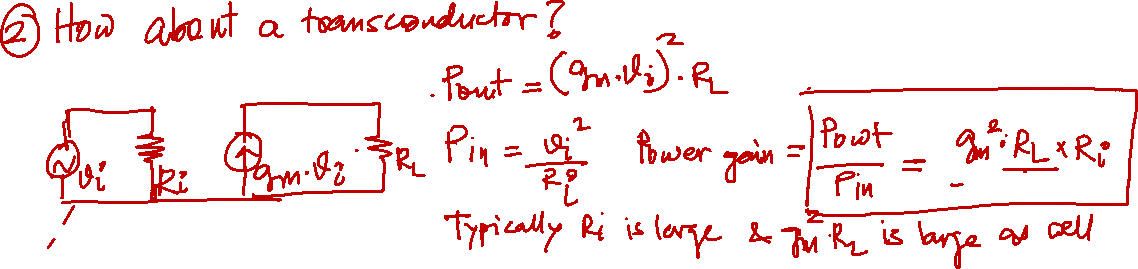 ② How about a transconductor?
. Pout = (gm·vi)²·RL
vi Ri gm·vi RL Pin = vi²/Ri Power gain = Pout/Pin = gm²·RL × Ri
Typically Ri is large & gm²·RL is large as well